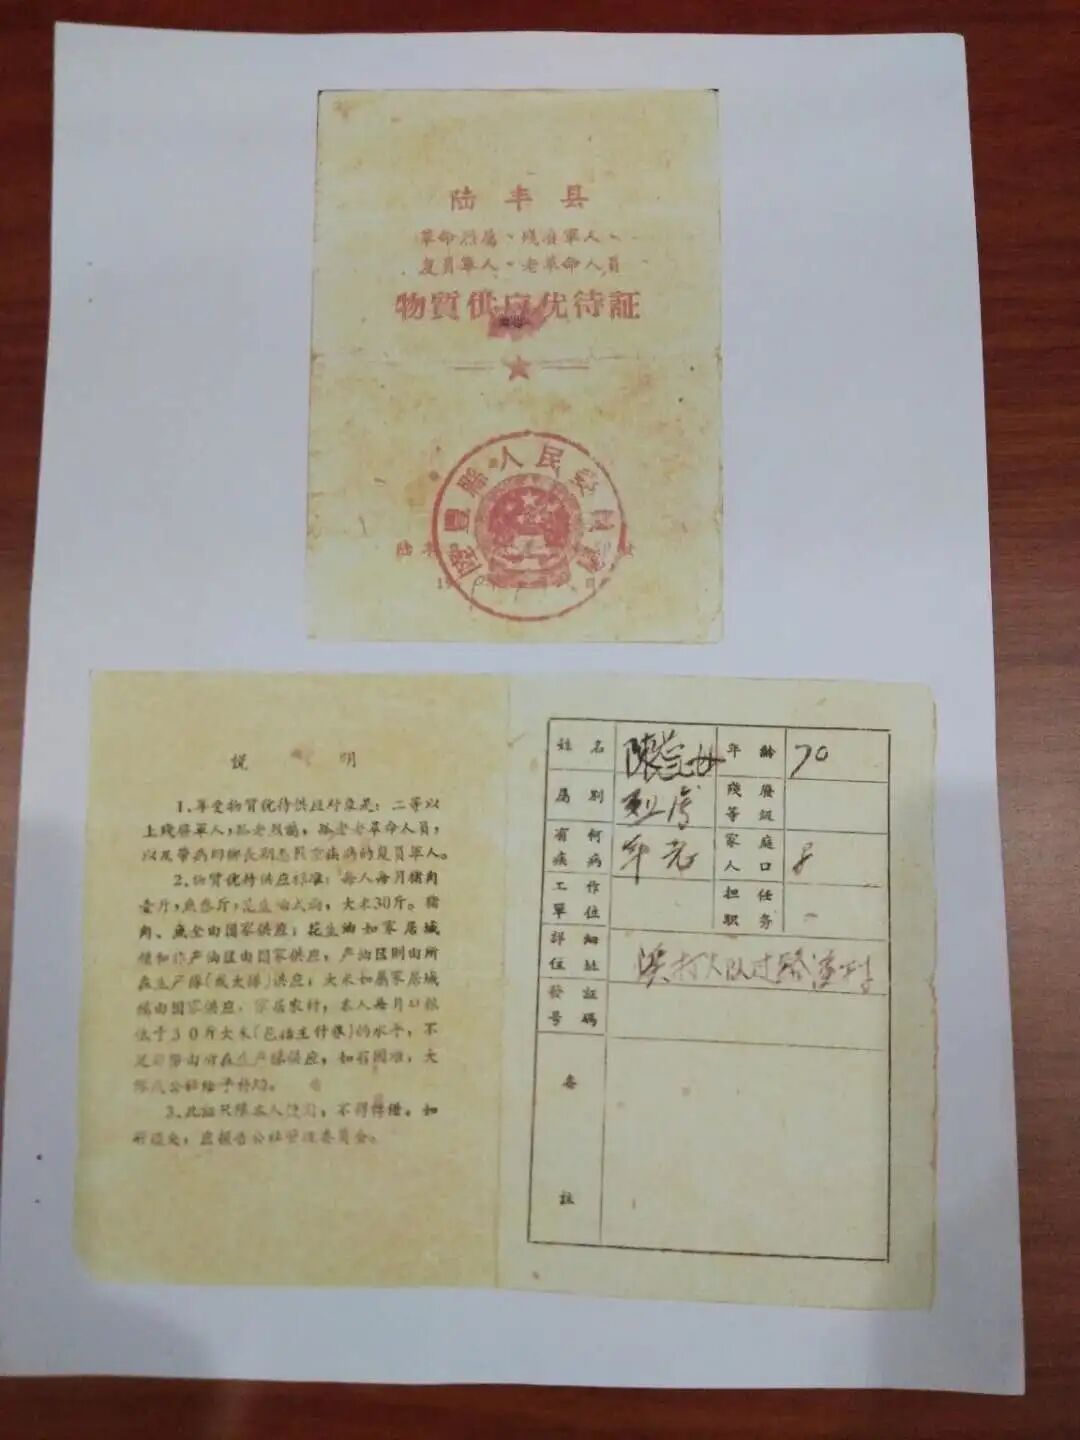 陆丰县
革命烈属、残廢軍人、
复員軍人、老革命人員
物質供应优待証
人民委員
陆丰
19
日
説 明
1、享受物質优待供应对象是：二等以
上殘廢軍人，孤老烈屬，孤老老革命人員，
以及带病回鄉长期患严重疾病的复員軍人。
2、物質优待供应标准：每人每月猪肉
壹斤，魚叁斤，花生油弍両，大米30斤。猪
肉、魚全由国家供应；花生油如家居城
鎮和非产油区由国家供应，产油区則由所
在生产隊（或大隊）供应；大米如屬家居城
鎮由国家供应，家居农村，本人每月口粮
低于30斤大米（包括主什粮）的水平，不
足部份由所在生产隊供应，如有困难，大
隊或公社給予补助。
3、此証只限本人使用，不得轉借。如
有遺失，应报告公社管理委員会。
姓名 陳 年齡 70
屬别 烈屬 殘廢等級
有何疾病 年老 家庭人口
工作單位 担任职务
詳細住址 大队过路
發証号碼
备註